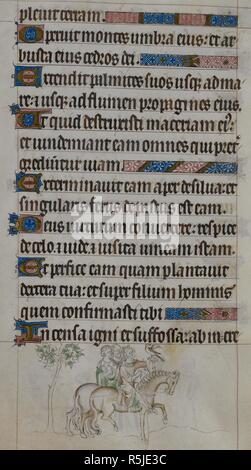 pleuit terram.
Operuit montes umbra eius: et ar
busta eius cedros dei.
Extendit palmites suos usq; ad ma
re: et usq; ad flumen propagines eius.
Ut quid destruxisti maceriam ei9:
et uindemiant eam omnes qui pret
grediuntur uiam
Exterminauit eam aper de silua: et
singularis ferus depastus est eam.
Deus uirtutum conuertere: respice
de celo et uide et uisita uineam istam.
Et perfice eam quam plantauit
dextera tua: et super filium hominis
quem confirmasti tibi
Incensa igni et suffossa: ab incre
alamy
Image ID: R5JE3C
www.alamy.com